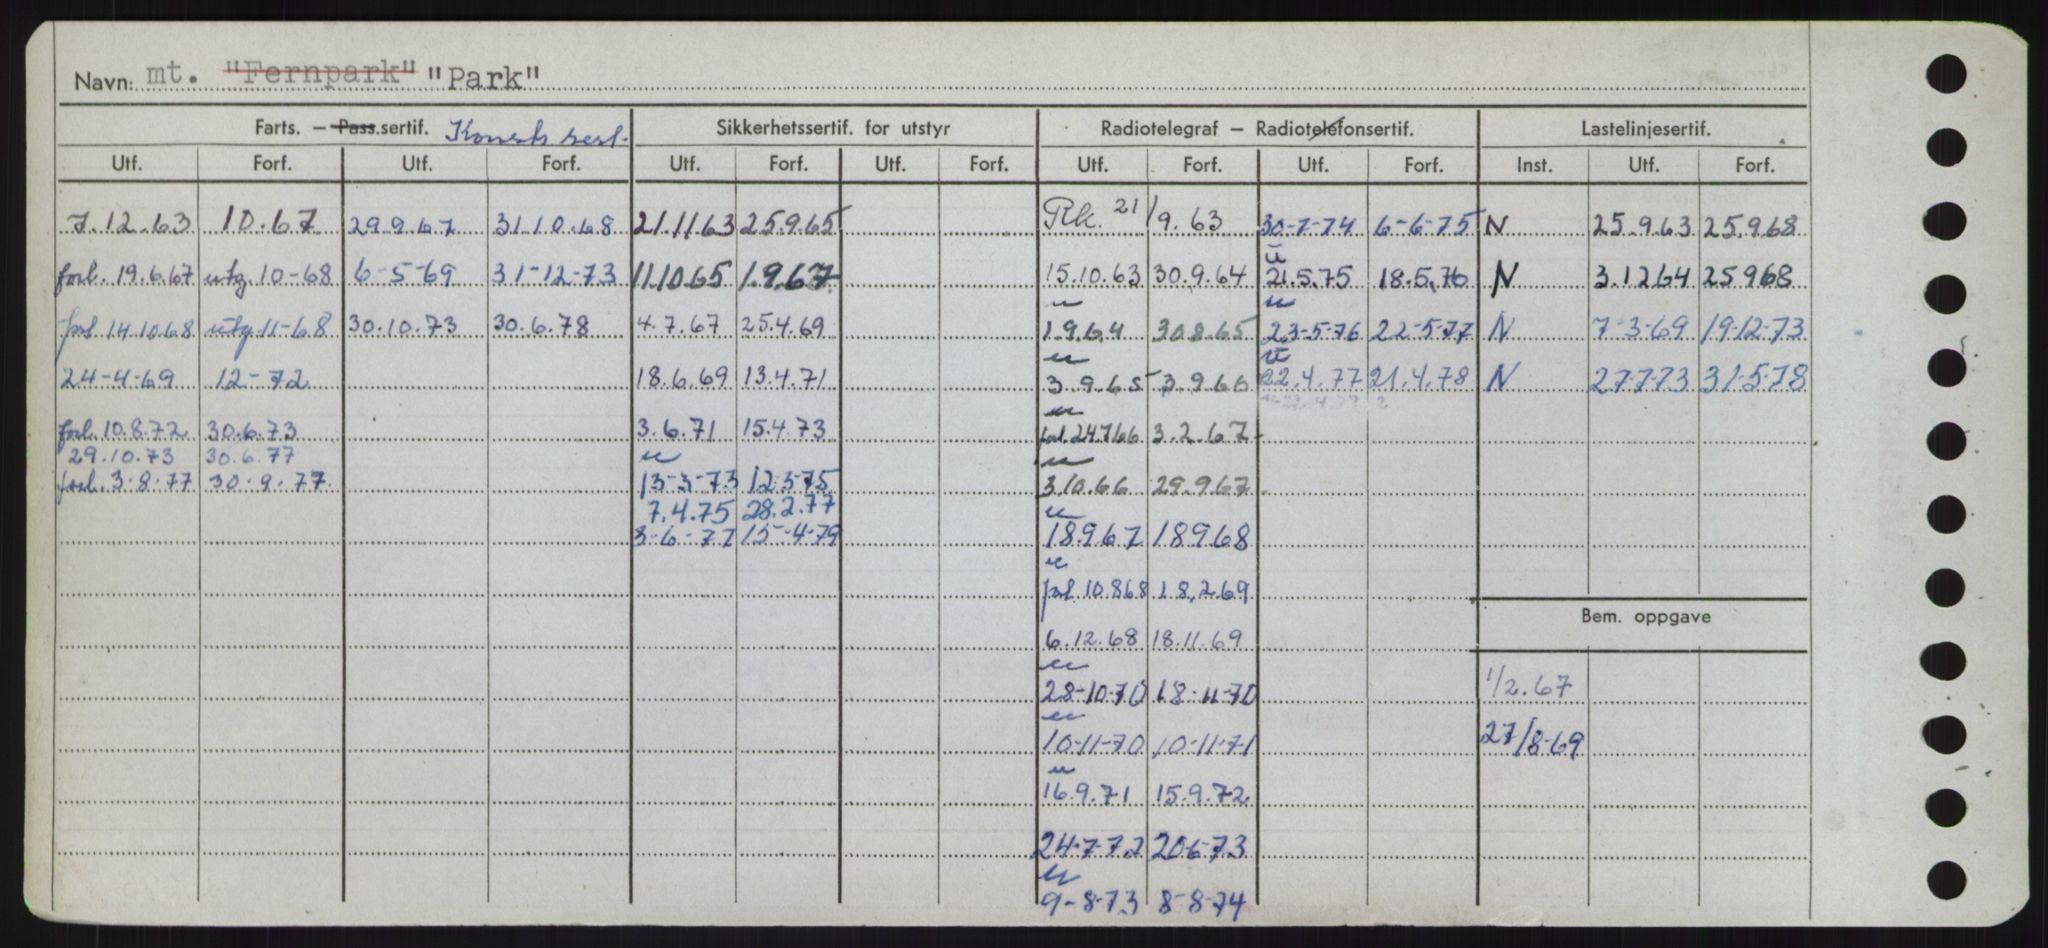 Navn: mt. "Fernpark" "Park"
Farts. – Pass.sertif. Sikkerhetssertif. for utstyr Radiotelegraf – Radiotelefonsertif. Lastelinjesertif.
Utf. Forf. Utf. Forf. Utf. Forf. Utf. Forf. Utf. Forf. Utf. Forf. Inst. Utf. Forf.
7.12.63 10.67 29.9.67 31.10.68 21.11.63 25.9.65 Rk. 21/9.63 30-7-74 6-6-75 N 25.9.63 25.9.68
forl. 19.6.67 utg. 10-68 6-5-69 31-12-73 11.10.65 1.9.67 15.10.63 30.9.64 21.5.75 18.5.76 N 3.12.64 25.9.68
forl. 14.10.68 utg. 11-68 30.10.73 30.6.78 4.7.67 25.4.69 1.9.64 30.8.65 23-5-76 22-5-77 N 7-3-69 19-12-73
24-4-69 12-72 18.6.69 13.4.71 3.9.65 3.9.66 22.4.77 21.4.78 N 27.7.73 31-5-78
forl. 10.8.72 30.6.73 3.6.71 15.4.73 forl. 24.7.66 3.2.67
29.10.73 30.6.77
forl. 3-8-77 30-9-77 13-3-73 12.3.75 3.10.66 29.9.67
7.4.75 28.2.77
3-6-77 15-4-79 18.9.67 18.9.68
forl. 10.8.68 18.2.69
Bem. oppgave
6.12.68 18.11.69
28-10-70 18-11-70 1/2.67
10-11-70 10-11-71 27/8-69
16.9.71 15.9.72
24-7-72 20.6.73
9-8-73 8-8-74